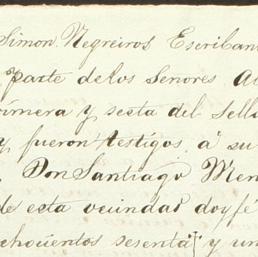 Simon Negreiros Escriban
y parte de los Senores
rimera y sesta del Sello
y fueron testigos, á su
Don Santiago Men
de esta vecindad doy fé
chocientos sesenta y un